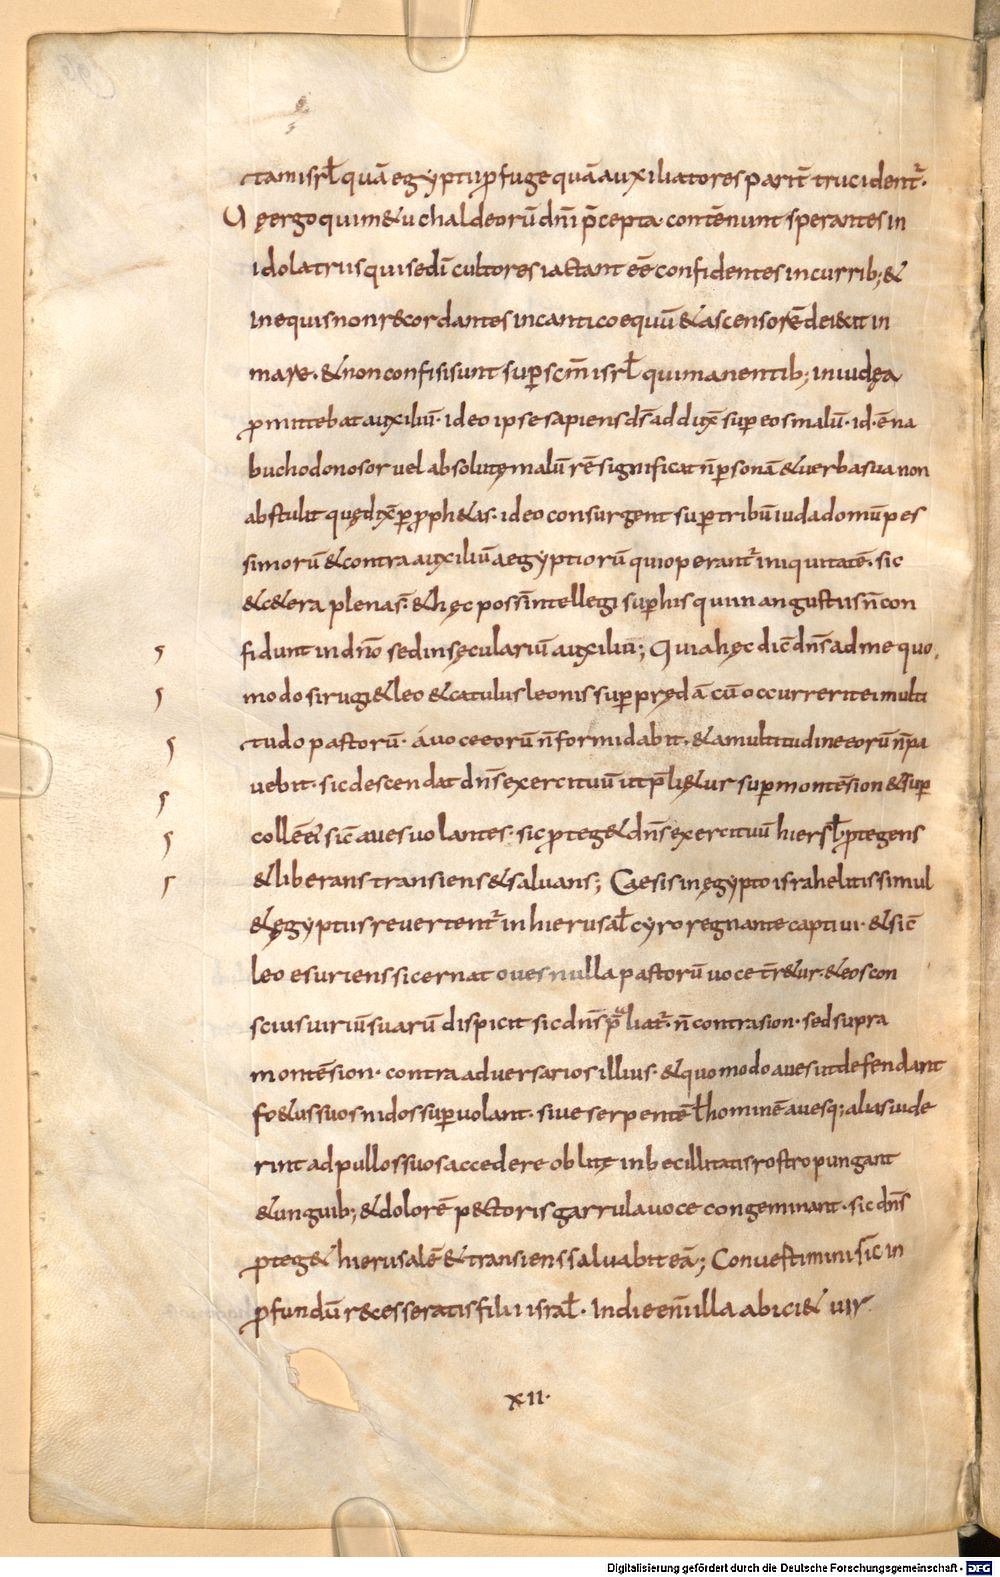 tam isrł quā egyptii ꝓfuge quā auxiliatores parit̄ trucident᷑.
Uę ergo qui metu chaldeorū dn̄i p̄cepta contēnunt sperantes in
idolatriis qui se dī cultores iactant eē confidentes in currib; &
in equis non recordantes in cantico equū & ascensorē deiecit in
mare. & non confisi sunt suꝑ scm̄ isrł qui manentib; in iudęa
ꝓmittebat auxiliū. ideo ipse sapiens ds̄ adduxē suꝑ eos malū. id. ē na
buchodonosor vel absolutę malū rē significat n̄ ꝑsonā & verba sua non
abstulit quę dixē ꝑ ꝓph&as. ideo consurgent suꝑ tribū iuda domū pes
simorū & contra auxiliū aegyptiorū qui operant᷑ iniquitatē. sic
& c&era plena s̄. & hęc poss̄ intellegi suꝑ his qui in angustiis n̄ con
fidunt in dn̄o sed in sęculariū auxiliū; Quia hęc dic̄ dn̄s ad me quo,
modo si rugi& leo & catulus leonis suꝑ prędā cū occurrerit ei multi
tudo pastorū. a voce eorū n̄ formidabit. & a multitudine eorū n̄ pa
vebit. sic descendat dn̄s exercituū ut p̄li&ur suꝑ montē sion & suꝑ
collē ei᷒ sic̄ aves volantes. sic ꝓteg& dn̄s exercituū hiersł ꝓtegens
& liberans transiens & salvans; Caesis in ęgypto israhelitis simul
& ęgyptiis revertent᷑ in hierusał cyro regnante captivi. & sic̄
leo esuriens si cernat oves nulla pastorū voce t̄r&ur. & eos con
scius viriū suarū dispicit sic dn̄s p̄liat᷑. n̄ contra sion. sed supra
montē sion. contra adversarios illius. & quomodo aves ut defendant
fo&us suos nidos suꝑvolant. sive serpentē ł hominē avesq; alias vide
rint ad pullos suos accedere oblitę inbecillitatis rostro pungant
& unguib; & dolorē pectoris garrula voce congeminant. sic dn̄s
ꝓteg& hierusalē & transiens salvabit eā; Convertimini sic̄ in
ꝓfundū r&cesseratis filii israł. In die eni᷒ illa abici& vir
XII.
Digitalisierung gefördert durch die Deutsche Forschungsgemeinschaft - DFG